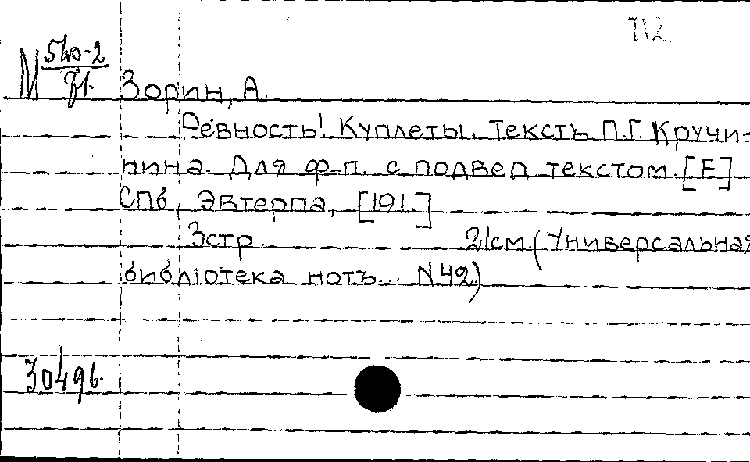 712
М 540-2
Зорин, А.
Ревность! Куплеты. Текстъ П.Г. Кручи-
нина. Для ф-п. с подвед. текстом. [Е]
СПб, Эвтерпа, [191.]
3стр 21см (Универсальная
библіотека нотъ. N 42)
30496.